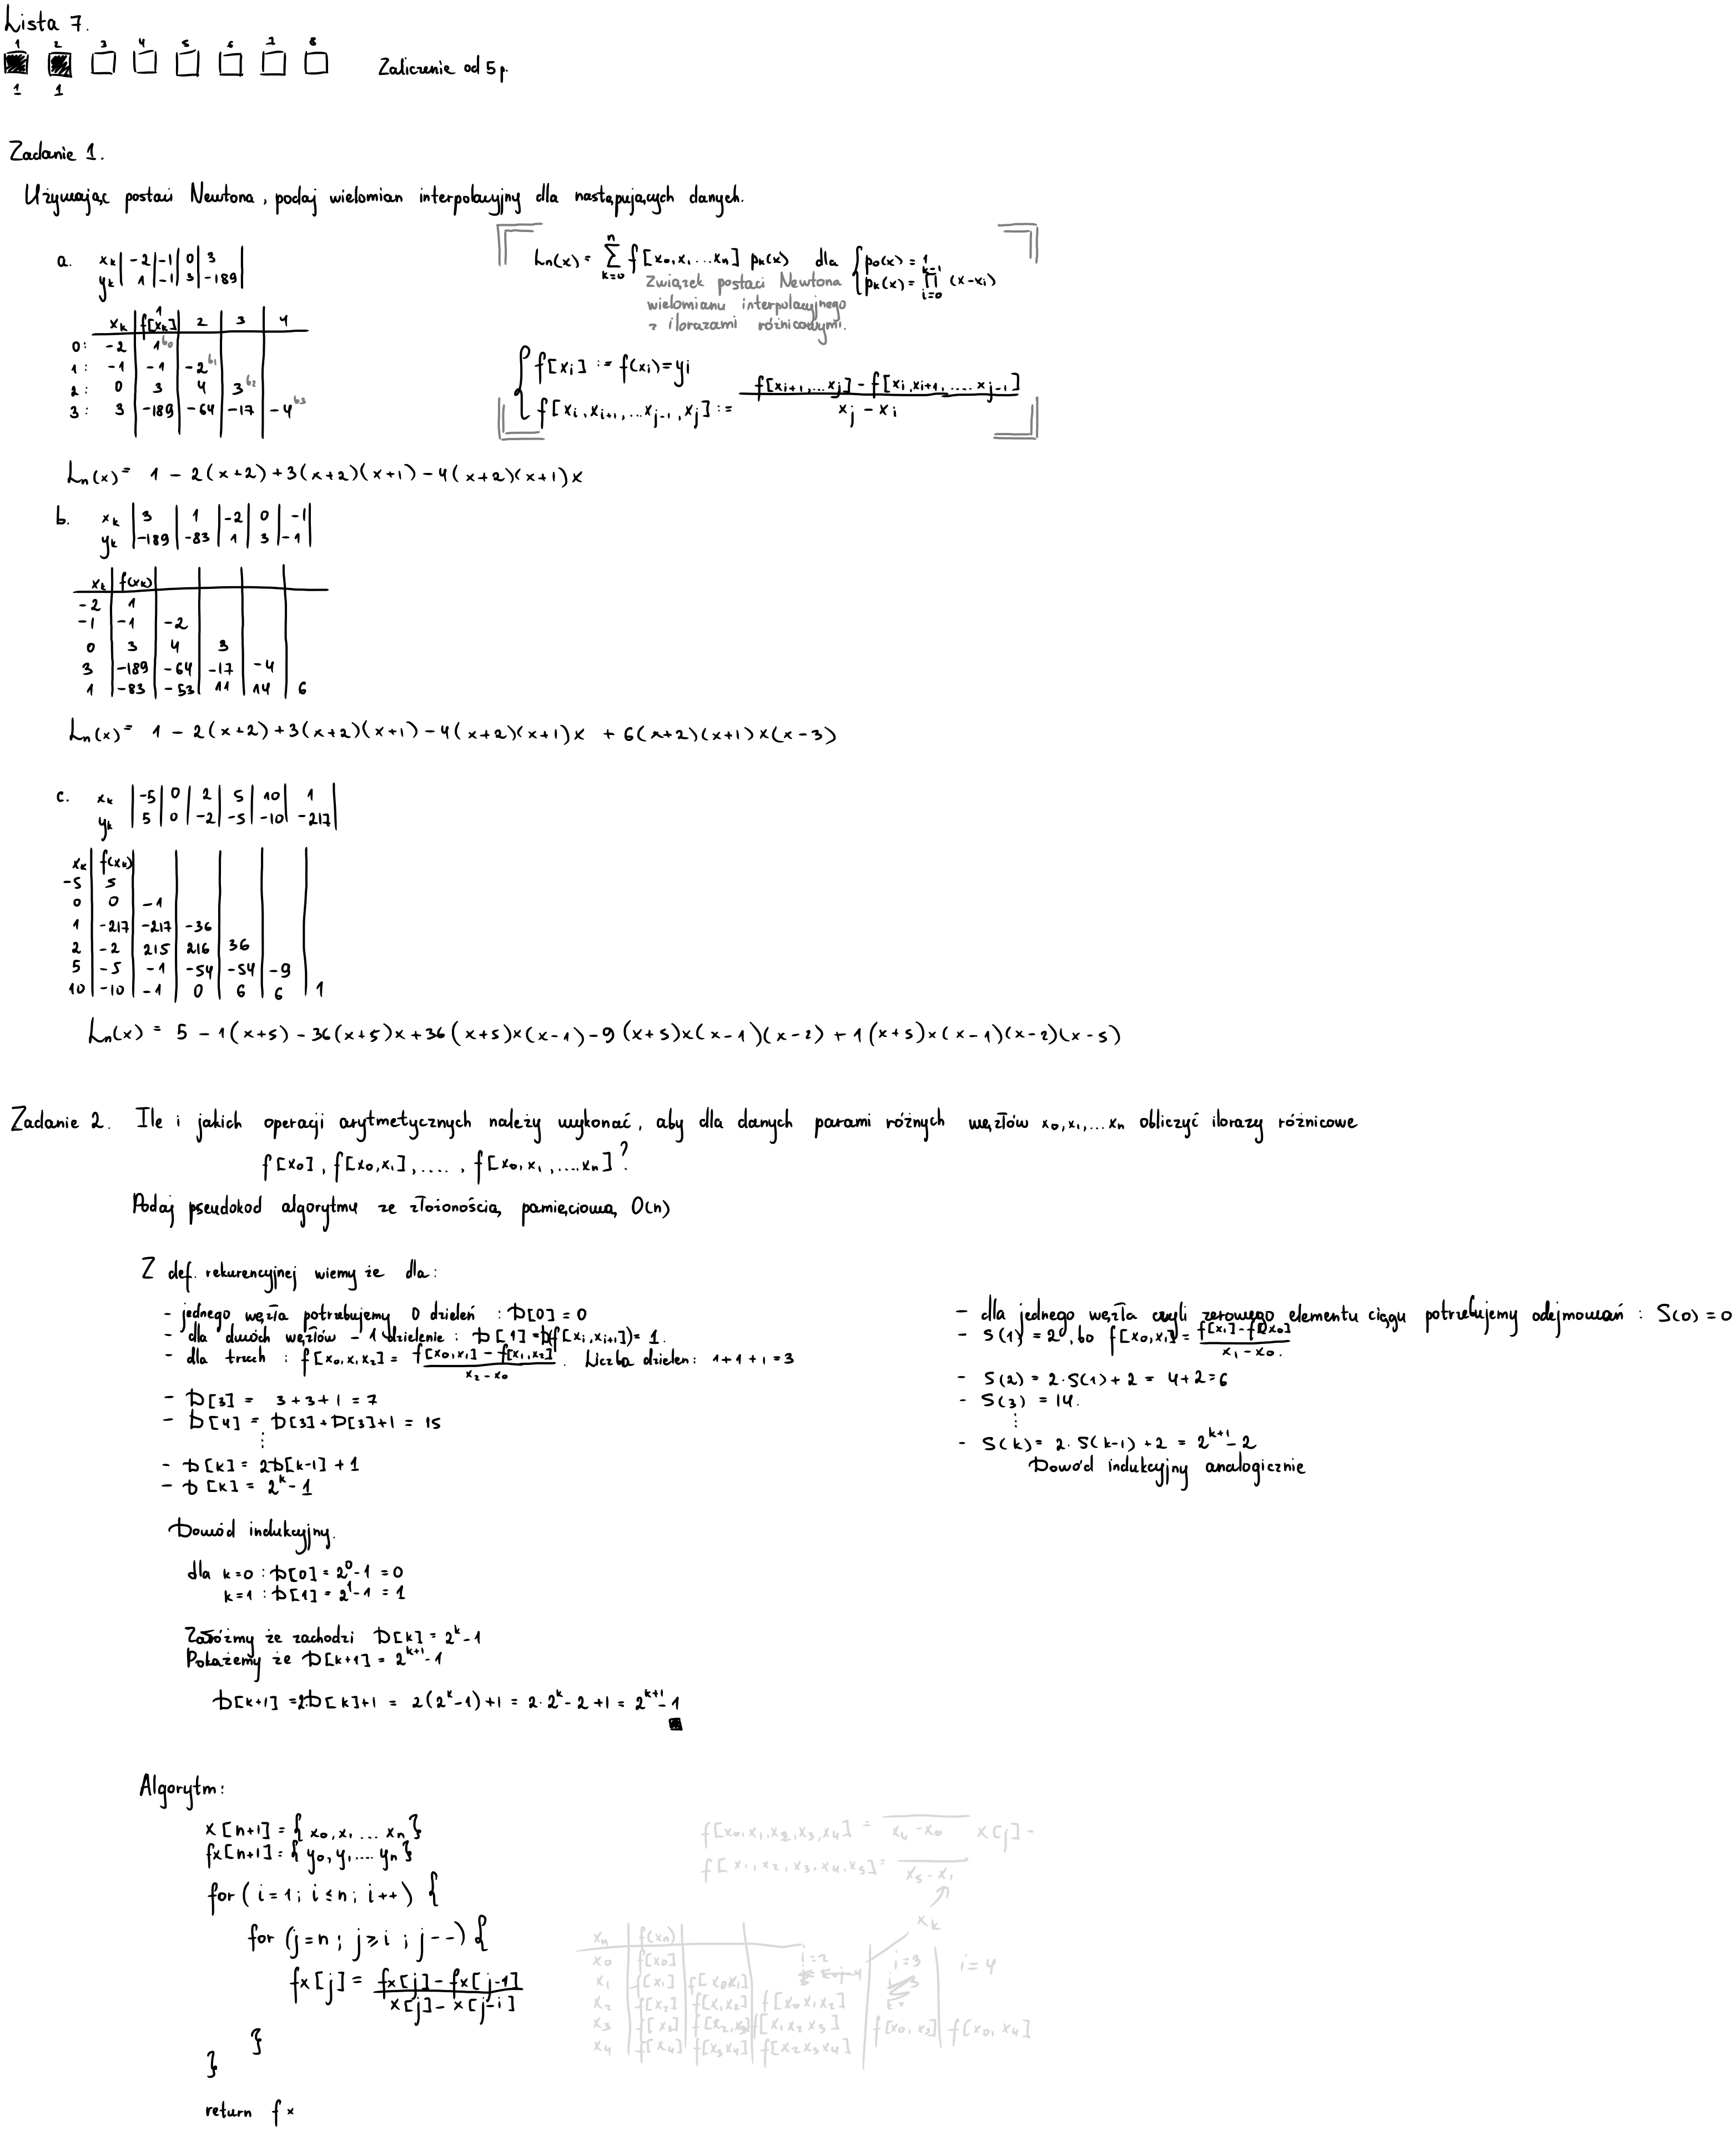 Lista 7.
1 2 3 4 5 6 7 8
Zaliczenie od 5 p.
1 1
Zadanie 1.
Używając postaci Newtona, podaj wielomian interpolacyjny dla następujących danych.
a. xk | -2 | -1 | 0 | 3
yk | 1 | -1 | 3 | -189
xk | f[xk] 1 | 2 | 3 | 4
0: -2 | 1 b0
1: -1 | -1 | -2 b1
2: 0 | 3 | 4 | 3 b2
3: 3 | -189 | -64 | -17 | -4 b3
Ln(x) = Σ k=0 n f[x0,x1...xn] pk(x) dla { p0(x) = 1
pk(x) = ∏ i=0 k-1 (x-xi)
Związek postaci Newtona
wielomianu interpolacyjnego
z ilorazami różnicowymi.
f[xi] := f(xi)=yi
f[xi,xi+1,...xj-1,xj] := (f[xi+1,...xj] - f[xi,xi+1,....xj-1]) / (xj - xi)
Ln(x) = 1 - 2(x+2) + 3(x+2)(x+1) - 4(x+2)(x+1)x
b. xk | 3 | 1 | -2 | 0 | -1
yk | -189 | -83 | 1 | 3 | -1
xk | f(xk)
-2 | 1
-1 | -1 | -2
0 | 3 | 4 | 3
3 | -189 | -64 | -17 | -4
1 | -83 | -53 | 11 | 14 | 6
Ln(x) = 1 - 2(x+2) + 3(x+2)(x+1) - 4(x+2)(x+1)x + 6(x+2)(x+1)x(x-3)
c. xk | -5 | 0 | 2 | 5 | 10 | 1
yk | 5 | 0 | -2 | -5 | -10 | -217
xk | f(xk)
-5 | 5
0 | 0 | -1
1 | -217 | -217 | -36
2 | -2 | 215 | 216 | 36
5 | -5 | -1 | -54 | -54 | -9
10 | -10 | -1 | 0 | 6 | 6 | 1
Ln(x) = 5 - 1(x+5) - 36(x+5)x + 36(x+5)x(x-1) - 9(x+5)x(x-1)(x-2) + 1(x+5)x(x-1)(x-2)(x-5)
Zadanie 2. Ile i jakich operacji arytmetycznych należy wykonać, aby dla danych parami różnych węzłów x0,x1,...xn obliczyć ilorazy różnicowe
f[x0], f[x0,x1], ...., f[x0,x1,....xn]?
Podaj pseudokod algorytmu ze złożonością pamięciową O(n)
Z def. rekurencyjnej wiemy że dla:
- jednego węzła potrzebujemy 0 dzieleń : D[0] = 0
- dla dwóch węzłów - 1 dzielenie : D[1] = D(f[xi,xi+1]) = 1.
- dla trzech : f[x0,x1,x2] = (f[x0,x1] - f[x1,x2]) / (x2-x0). Liczba dzieleń: 1+1+1=3
- D[3] = 3+3+1 = 7
- D[4] = D[3]+D[3]+1 = 15
⋮
- D[k] = 2D[k-1] + 1
- D[k] = 2^k - 1
- dla jednego węzła czyli zerowego elementu ciągu potrzebujemy odejmowań : S(0) = 0
- S(1) = 2, bo f[x0,x1] = (f[x1] - f[x0]) / (x1 - x0).
- S(2) = 2·S(1) + 2 = 4+2=6
- S(3) = 14.
⋮
- S(k) = 2·S(k-1) + 2 = 2^(k+1) - 2
Dowód indukcyjny analogicznie
Dowód indukcyjny.
dla k=0 : D[0] = 2^0 - 1 = 0
k=1 : D[1] = 2^1 - 1 = 1
Załóżmy że zachodzi D[k] = 2^k - 1
Pokażemy że D[k+1] = 2^(k+1) - 1
D[k+1] = 2D[k]+1 = 2(2^k-1)+1 = 2·2^k - 2 + 1 = 2^(k+1) - 1
Algorytm:
x[n+1] = { x0,x1 ... xn }
fx[n+1] = { y0,y1 .... yn }
for (i=1; i≤n; i++) {
for (j=n; j≥i; j--) {
fx[j] = (fx[j] - fx[j-1]) / (x[j] - x[j-i])
}
}
return fx
f[x0,x1,x2,x3,x4] = / (x4 - x0) x[j] -
f[x1,x2,x3,x4,x5] = / (x5 - x1)
xk
xn | f(xn)
x0 | f[x0] i=2 i=3 i=4
x1 | f[x1] | f[x0x1]
x2 | f[x2] | f[x1x2] | f[x0x1x2]
x3 | f[x3] | f[x2,x3] | f[x1x2x3] | f[x0,x3] | f[x0,x4]
x4 | f[x4] | f[x3x4] | f[x2x3x4]